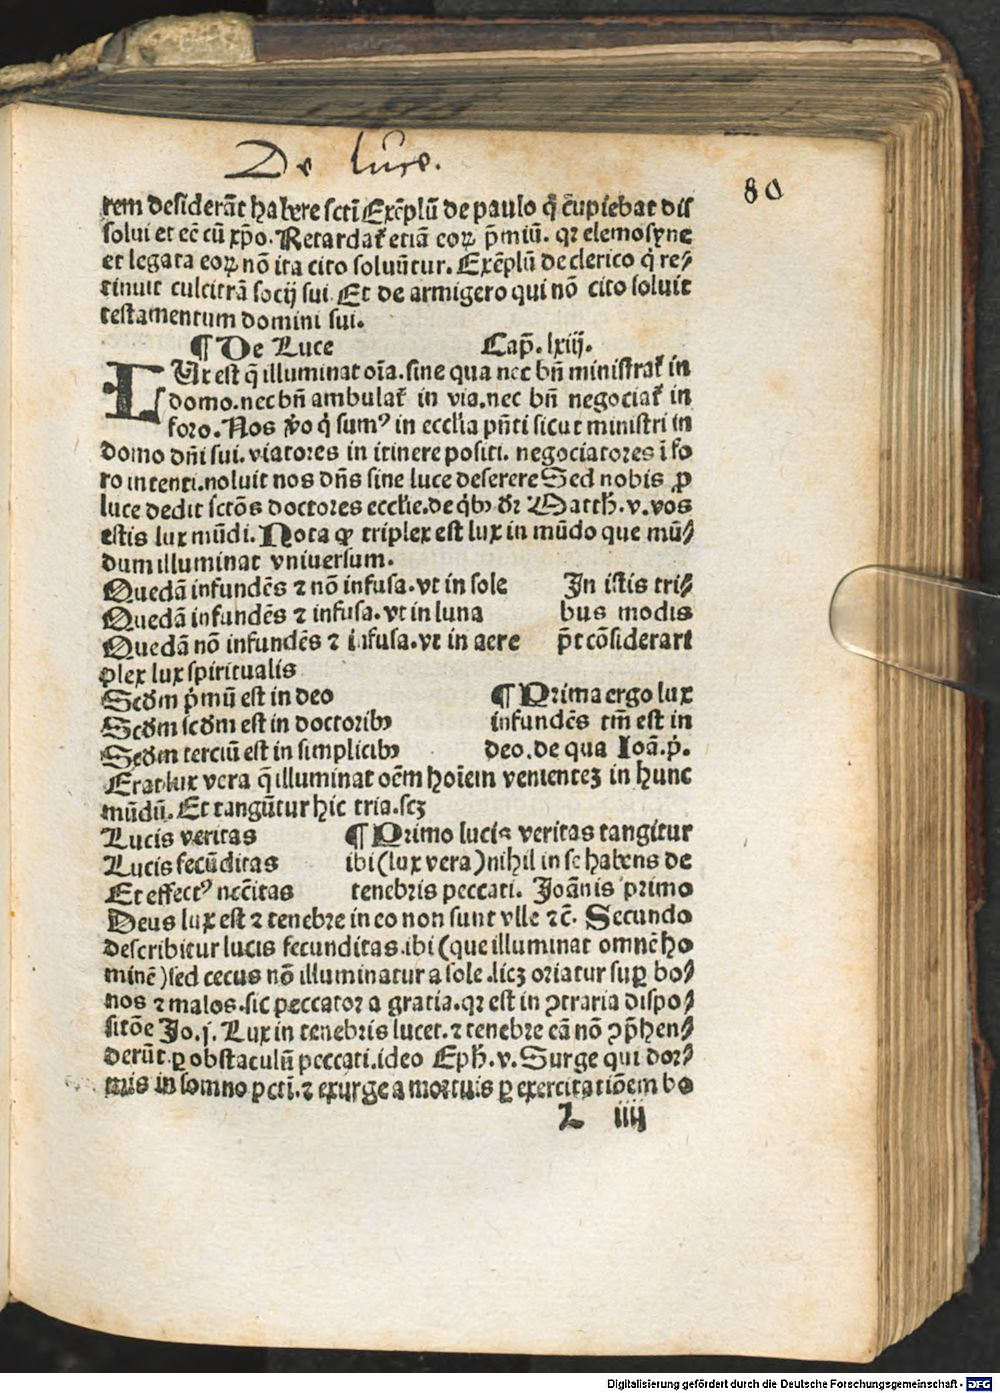 De luce.
80
tem desiderãt habere sctĩ Exẽplũ de paulo q̃ cupiebat dis
solui et eẽ cũ xp̃o. Retardať etiã eoꝝ p̃miũ. qꝛ elemosyne
et legata eoꝝ nõ ita cito soluũtur. Exẽplũ de clerico q̇ re⸗
tinuit culcitrã socij sui. Et de armigero qui nõ cito soluit
testamentum domini sui.
¶ De Luce Cap̃. lxiij.
LUx est q̃ illuminat oĩa. sine qua nec bñ ministrať in
domo. nec bñ ambulať in via. nec bñ negociať in
foro. Nos v̓o q̇ sumꝰ in eccĺia pñti sicut ministri in
domo dñi sui. viatores in itinere positi. negociatores ĩ fo
ro intenti. noluit nos dñs sine luce deserere Sed nobis ꝓ
luce dedit sctõs doctores eccĺie. de q̇bꝰ dꝛ Matth. v. vos
estis lux mũdi. Nota ꝙ triplex est lux in mũdo que mũ⸗
dum illuminat vniuersum.
Quedã infundẽs ⁊ nõ infusa. vt in sole In istis tri⸗
Quedã infundẽs ⁊ infusa. vt in luna bus modis
Quedã nõ infundẽs ⁊ infusa. vt in aere p̃t cõsiderari
plex lux spiritualis
Scd̓m p̓mũ est in deo ¶ Prima ergo lux
Scd̓m scd̓m est in doctoribꝰ infundẽs tm̃ est in
Scd̓m terciũ est in simplicibꝰ deo. de qua Ioã. p̓.
Erat lux vera q̃ illuminat oẽm hoĩem venienteꝫ in hunc
mũdũ. Et tangũtur hic tria. scꝫ
Lucis veritas ¶ Primo lucis veritas tangitur
Lucis fecũditas ibi (lux vera) nihil in se habens de
Et effectꝰ nec̃itas tenebris peccati. Joãnis primo
Deus lux est ⁊ tenebre in eo non sunt vlle ⁊c̃. Secundo
describitur lucis fecunditas. ibi (que illuminat omnẽ ho
minẽ) sed cecus nõ illuminatur a sole. licꝫ oriatur suꝑ bo⸗
nos ⁊ malos. sic peccator a gratia. qꝛ est in ꝯtraria dispo⸗
sitõe Jo. j. Lux in tenebris lucet. ⁊ tenebre eã nõ ꝯp̃hen⸗
derũt. ꝑ obstaculũ peccati. ideo Eph̃. v. Surge qui dor⸗
mis in somno pctĩ. ⁊ exurge a mortuis ꝑ exercitatiõem bo
L iiij
Digitalisierung gefördert durch die Deutsche Forschungsgemeinschaft - DFG